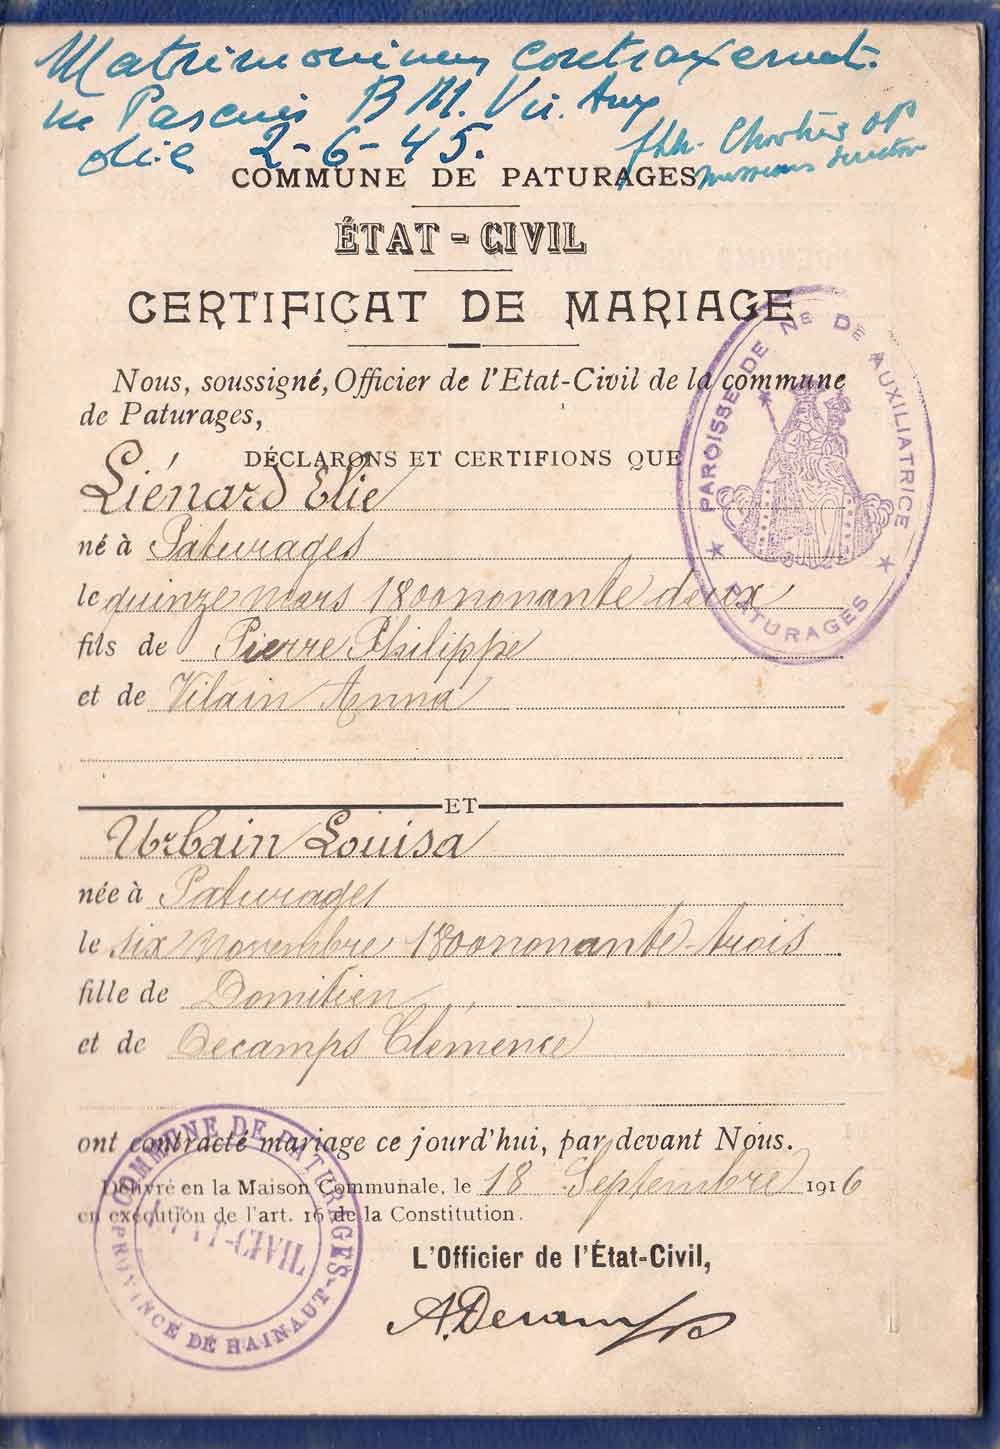 Matrimonium contraxerunt
in B M. V.
die 2-6-45.
COMMUNE DE PATURAGES
ÉTAT-CIVIL
CERTIFICAT DE MARIAGE
Nous, soussigné, Officier de l'Etat-Civil de la commune
de Paturages,
DÉCLARONS ET CERTIFIONS QUE
Liénard Elie
né à Paturages
le quinze mars 1800nonante deux
fils de Pierre Philippe
et de Vilain Anna
ET
Urbain Louisa
née à Paturages
le six novembre 1800nonante-trois
fille de Domitien
et de Decamps Clémence
ont contracté mariage ce jourd'hui, par devant Nous.
Délivré en la Maison Communale, le 18 Septembre 1916
en exécution de l'art. 16 de la Constitution.
L'Officier de l'État-Civil,
A. Decamps
PAROISSE DE NE DE AUXILIATRICE
★ PATURAGES ★
COMMUNE DE PATURAGES
ETAT-CIVIL
PROVINCE DE HAINAUT